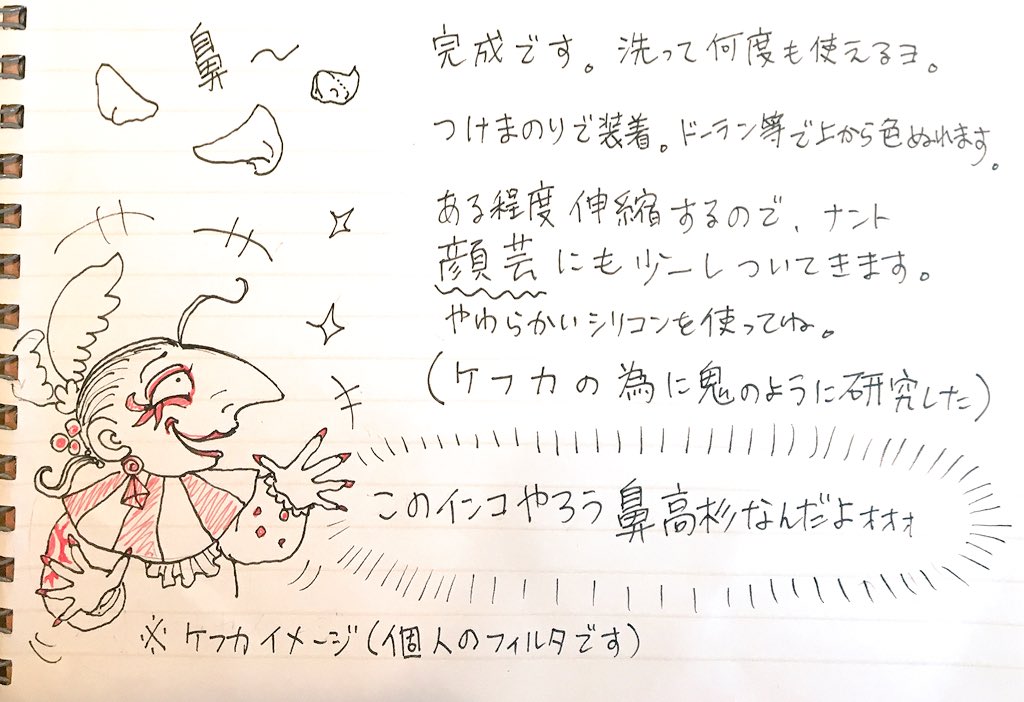 鼻～
完成です。洗って何度も使えるヨ。
つけまのりで装着。ドーラン等で上から色ぬれます。
ある程度伸縮するので、ナント
顔芸にも少ーしついてきます。
やわらかいシリコンを使ってね。
(ケフカの為に鬼のように研究した)
このインコやろう鼻高杉なんだよォォォ
※ケフカイメージ(個人のフィルタです)